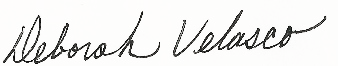 Deborah Velasco